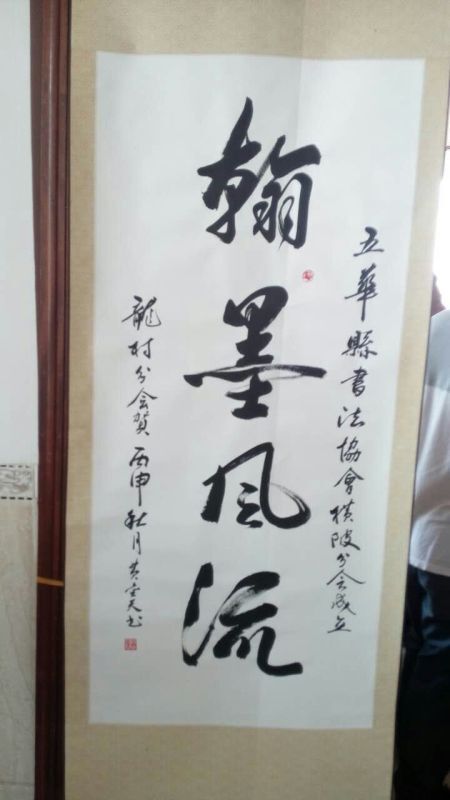 五華縣書法協會橫陂分会成立
翰墨风流
龍村分会贺 丙申秋月 黄雲天书